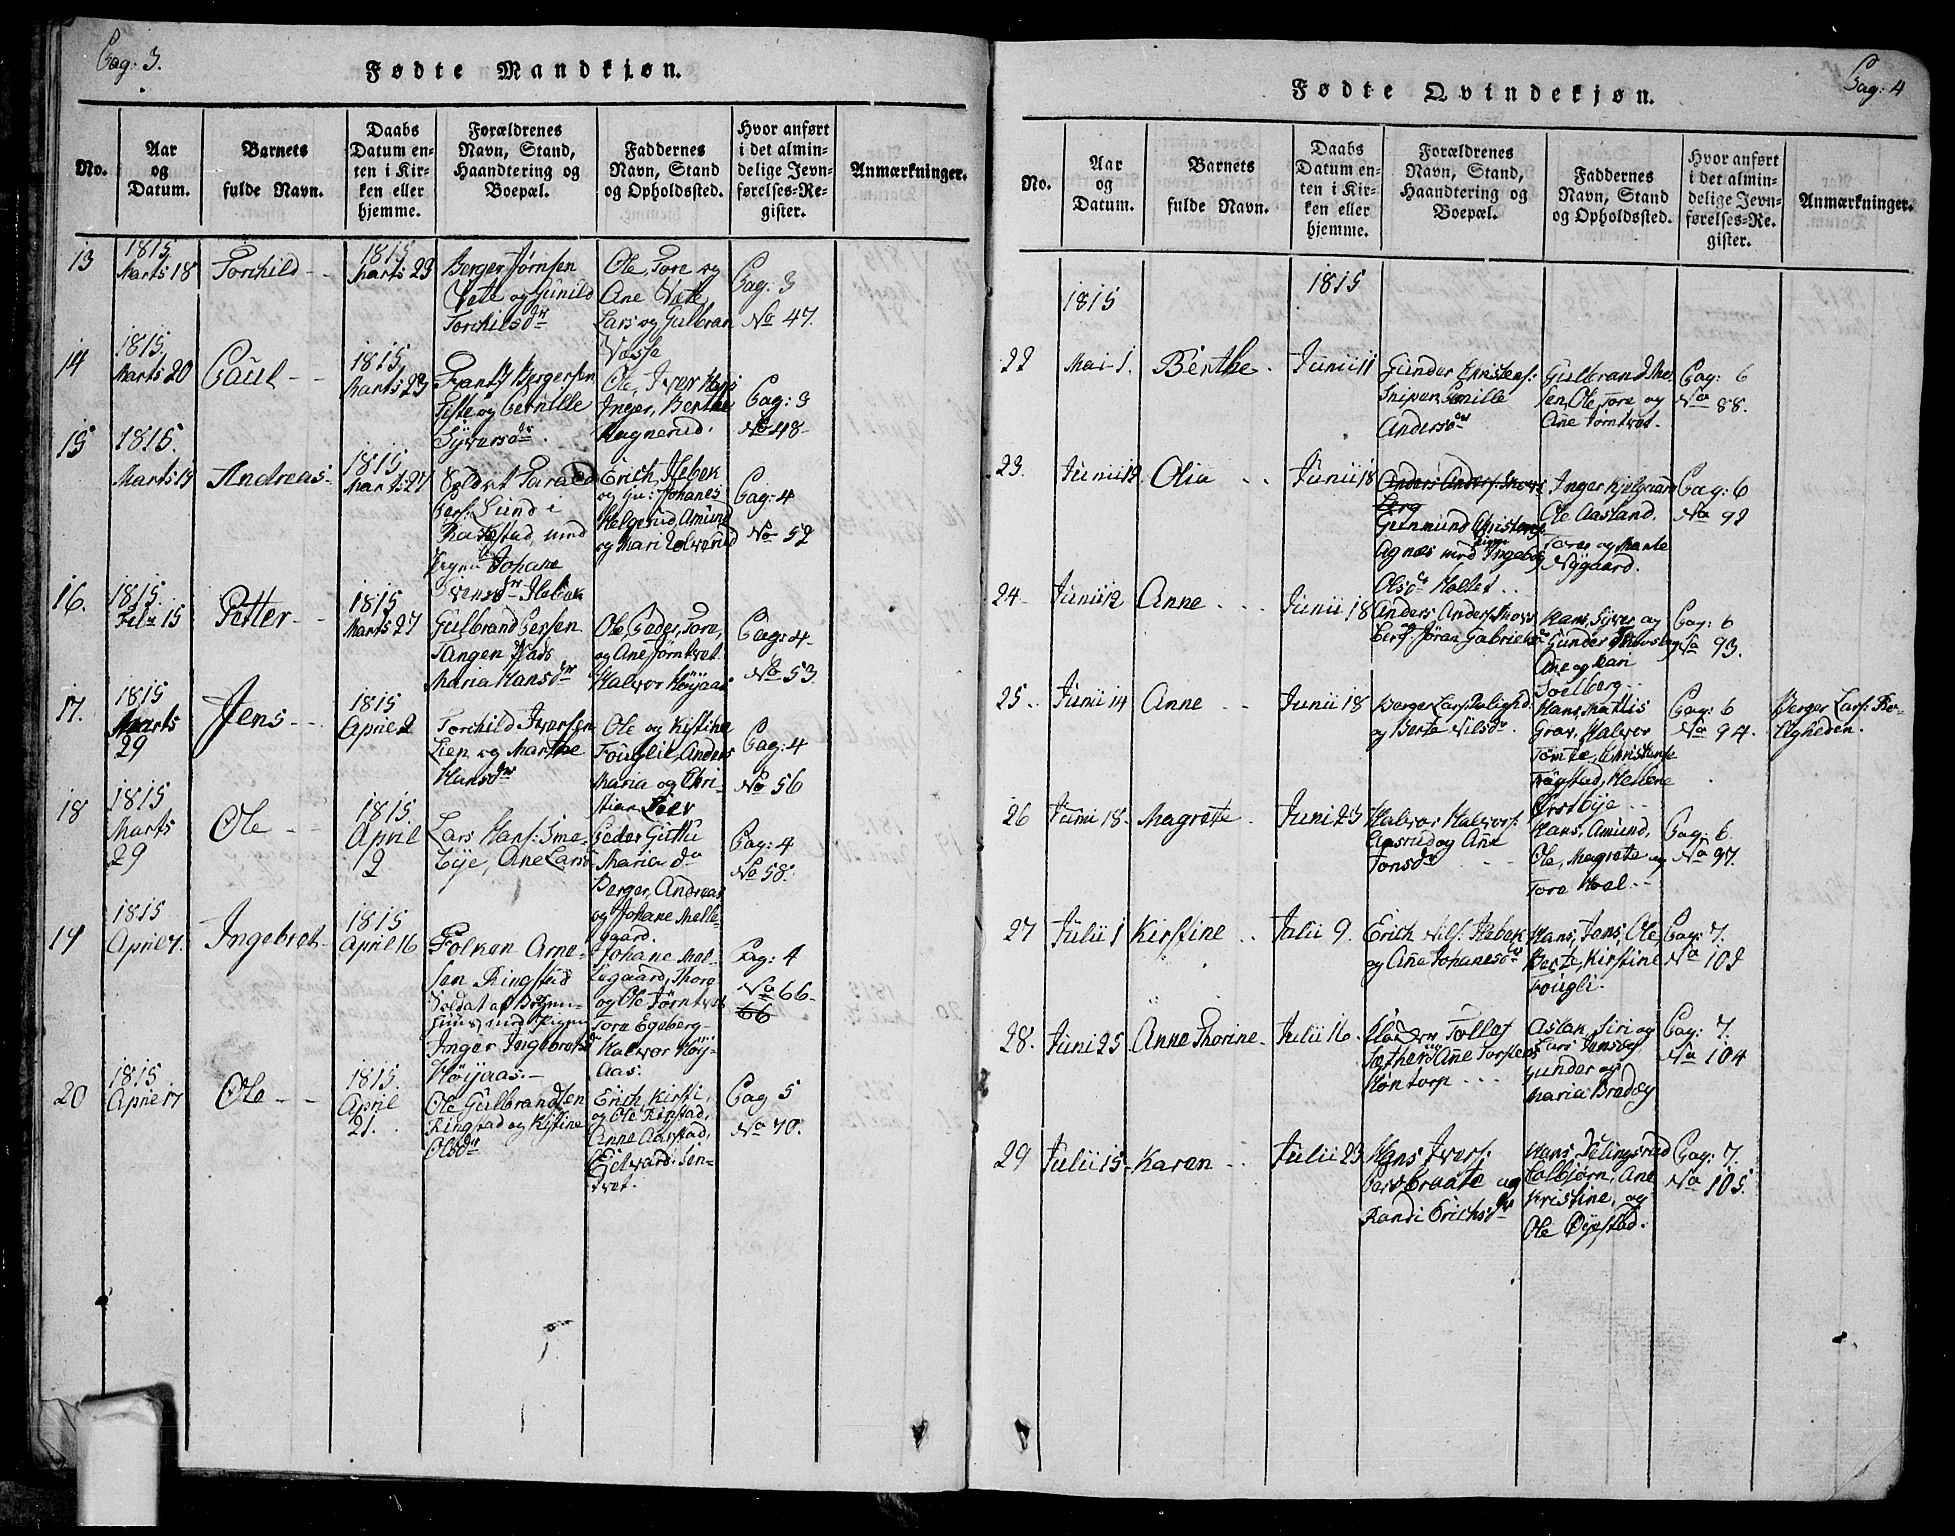 Pag: 3.
Fødte Mandkjøn.
No.
Aar
og
Datum.
Barnets
fulde Navn.
Daabs
Datum en-
ten i Kir-
ken eller
hjemme.
Forældrenes
Navn, Stand,
Haandtering og
Boepæl.
Faddernes
Navn, Stand
og Opholdssted.
Hvor anført
i det almin-
delige Jevn-
førelses-Re-
gister.
Anmærkninger.
13
1815
Marts 18
Torchild
1815
Marts 23
Berger Jørnsen
Næte og Gunild
Torchilsdr
Ole, Tore og
Ane Næte,
Lars og Gulbran
Pag: 3
No 47.
14
1815
Marts 20
Paul
1815
Marts 23
Frantz Bergersen
og Pernille
Syversdr.
Ole, Iver
Inger, Berthe
Magnerud.
Pag: 3
No 48.
15
1815.
Marts 19
Andreas
1815
Marts 27
Soldat
Lund i
Rakestad, med
Johane
Ilebek
Erich Ilebek
og Johanes
Helgerud, Amund
og Mari
Pag: 4
No 52
16.
1815.
Febr 15
Petter
1815
Marts 27
Gulbrand Persen
Tangen
Maria Hansdr
Ole, Peder, Tore,
og Ane Jørntvet
Halvor Höyaas
Pag: 4
No 53.
17.
1815
Marts
29
Jens
1815
April 2
Torchild Iversen
Lien og Marthe
Hansdr
Ole og Kistine
Fougli, Anders
Maria og Chri-
stian Lier
Pag: 4
No 56
18
1815
Marts
29
Ole
1815.
April
2
Lars Hans: Sme-
Eije, Ane Lars
Peder Guthu
Maria do
Berger, Andreas
og Johane Melle-
gaard.
Pag: 4
No 58.
19
1815
April 7.
Ingebret
1815
April 16
Folken Arne-
sen Ringstad
Soldat af
med
Inger Ingebretsdr
Höijaas.
Johane Mel-
legaard, Thore
og Ole Jörntvet
Tore Egeberg
Halvor Höy-
Aas.
Pag: 4
No 66
66
20
1815
April 17
Ole
1815.
April
21.
Ole Gulbrandsen
Ringstad og Kistine
Olsdr
Erich, Kirsti,
og Ole Ringstad,
Anne Aarstad,
Edvard Jen-
tvet.
Pag 5
No 70.
Pag: 4
Fødte Qvindekjøn.
No.
Aar
og
Datum.
Barnets
fulde Navn.
Daabs
Datum en-
ten i Kir-
ken eller
hjemme.
Forældrenes
Navn, Stand,
Haandtering og
Boepæl.
Faddernes
Navn, Stand
og Opholdssted.
Hvor anført
i det almin-
delige Jevn-
førelses-Re-
gister.
Anmærkninger.
1815
1815
22
Mai 1.
Berthe
Junii 11
Gunder Christens:
Sniper, Pernille
Andersdr
Gulbrand
Ole Tore og
Ane Jörntvet.
Pag: 6
No 88.
23.
Junii 12
Olia
Junii 18
Anders Anders: Skovs
berg
Guttmund Christens
Agnæs med Pigen Ingebor
Olsdr Holtet
Inger Kjelgaard
Ole Aasland.
Tores og Marte
Nygaard.
Pag: 6
No 92
24
Junii 12
Anne
Junii 18
Anders Anders: Skovs
berg, Jöran Gabrielsdr
Hans, Syver og
Gunder
Ane og Kari
Solberg
Pag: 6
No 93.
25.
Junii 14
Anne
Junii 18
Berger Lars: Bolighd
og Berte Nilsdr.
Hans, Mattis
Grav, Halvor
Tomte, Christense
Frögstad, Helene
Örstöije
Pag: 6
No 94.
Berger Lars: Bo-
ligheden.
26
Junii 18.
Magrette
Juni 23
Halvor Halvors:
Aasrud og Ane
Jonsdr
Hans, Amund,
Ole, Magrete og
Tore Hoel
Pag: 6.
No 97.
27
Julii 1
Kirstine
Julii 9.
Erich Nils: Ilebek
og Ane Johanesdr
Hans, Jens, Ole,
Berte, Kirstine
Fougli.
Pag: 7.
No 103
28.
Juni 25
Anne Thorine
Julii 16.
Tollef
og Ane Torstens
Höntorp
Aslan, Siri og
Lars
Gunder og
Maria Bradeg
Pag: 7.
No 104
29
Julii 15
Karen
Julii 23
Hans Ivers:
Persbraate og
Randi Erichsdr
Hans Delingsrud
Colbjørn, Ane
Kristine, og
Ole Öijestad.
Pag: 7.
No 105.